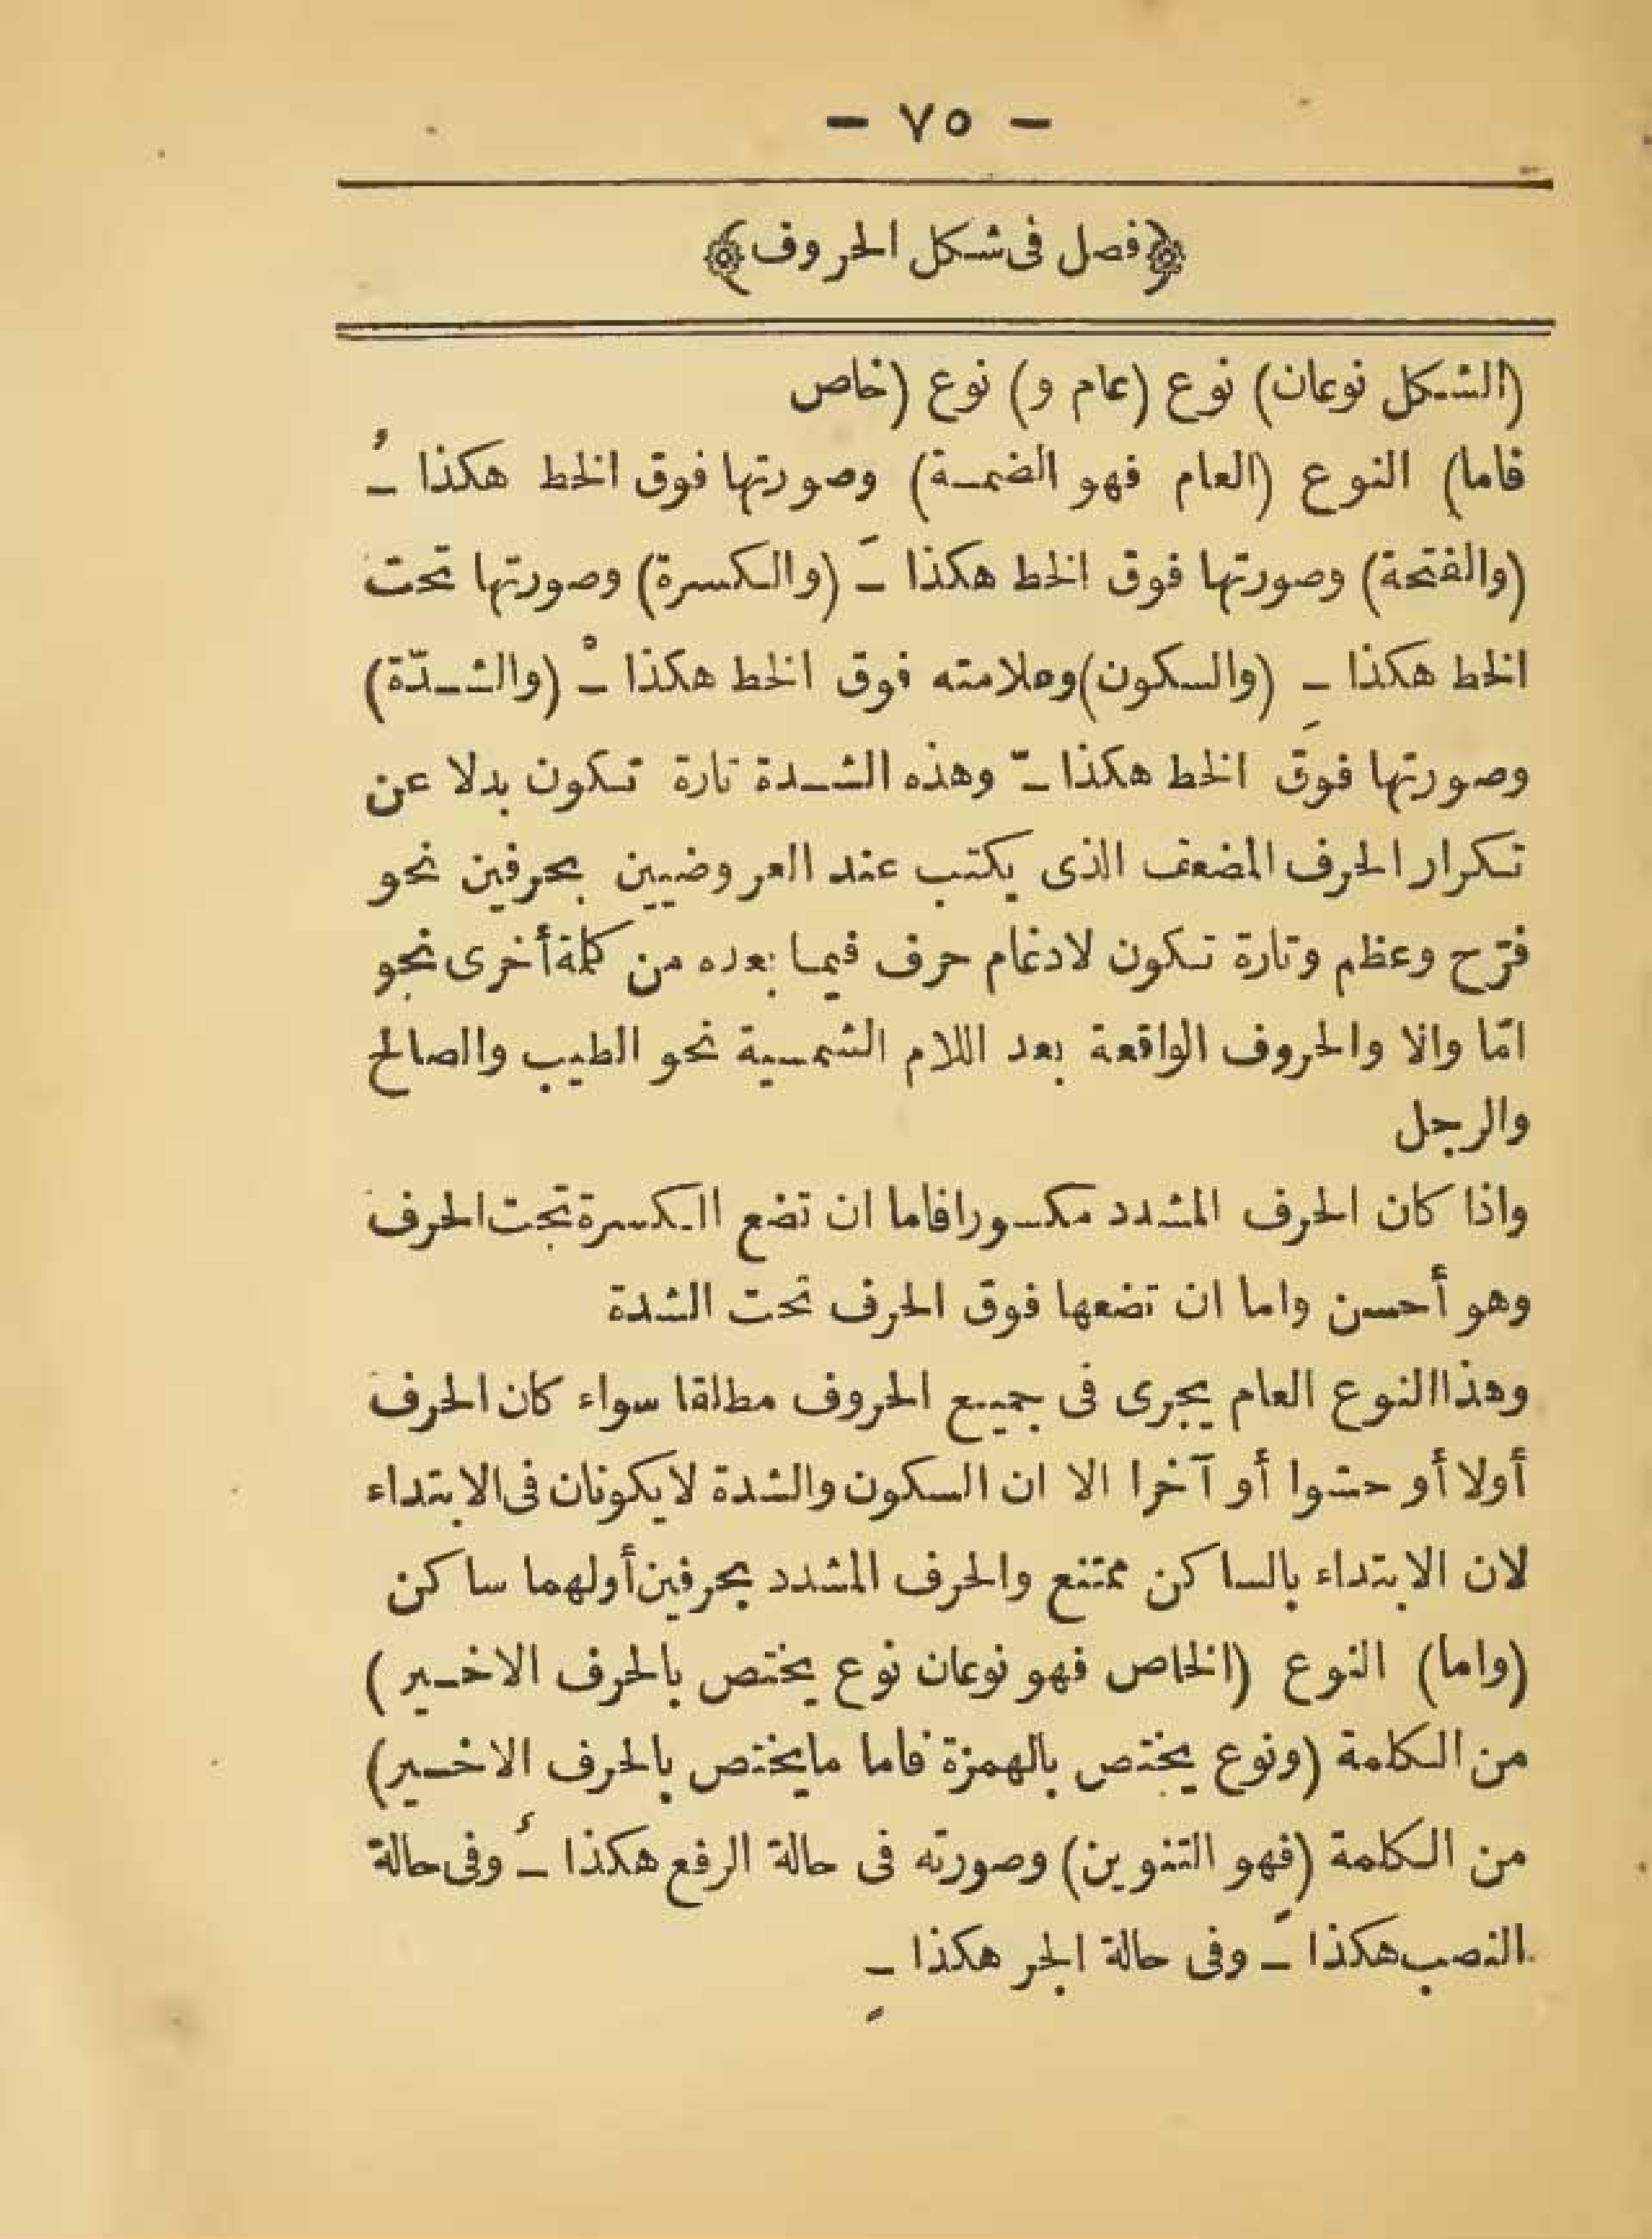 — ٧٥ —
﴿فصل فى شكل الحروف﴾
(الشكل نوعان) نوع (عام و) نوع (خاص
فاما) النوع (العام فهو الضمة) وصورتها فوق الخط هكذا ـُ
(والفتحة) وصورتها فوق الخط هكذا ـَ (والكسرة) وصورتها تحت
الخط هكذا ـِ (والسكون) وعلامته فوق الخط هكذا ـْ (والشدّة)
وصورتها فوق الخط هكذا ـّ وهذه الشدة تارة تكون بدلا عن
تكرار الحرف المضعف الذى يكتب عند العروضيين بحرفين نحو
فرّح وعظم وتارة تكون لادغام حرف فيما بعده من كلمة أخرى نحو
امّا والا والحروف الواقعة بعد اللام الشمسية نحو الطيب والصالح
والرجل
واذا كان الحرف المشدد مكسورا فاما ان تضع الكسرة تحت الحرف
وهو أحسن واما ان تضعها فوق الحرف تحت الشدة
وهذا النوع العام يجرى فى جميع الحروف مطلقا سواء كان الحرف
أولا أو حشوا أو آخرا الا ان السكون والشدة لا يكونان فى الابتداء
لان الابتداء بالساكن ممتنع والحرف المشدد بحرفين أولهما ساكن
(واما) النوع (الخاص فهو نوعان نوع يختص بالحرف الاخير)
من الكلمة (ونوع يختص بالهمزة فاما ما يختص بالحرف الاخير)
من الكلمة (فهو التنوين) وصورته فى حالة الرفع هكذا ـٌ وفى حالة
النصب هكذا ـً وفى حالة الجر هكذا ـٍ